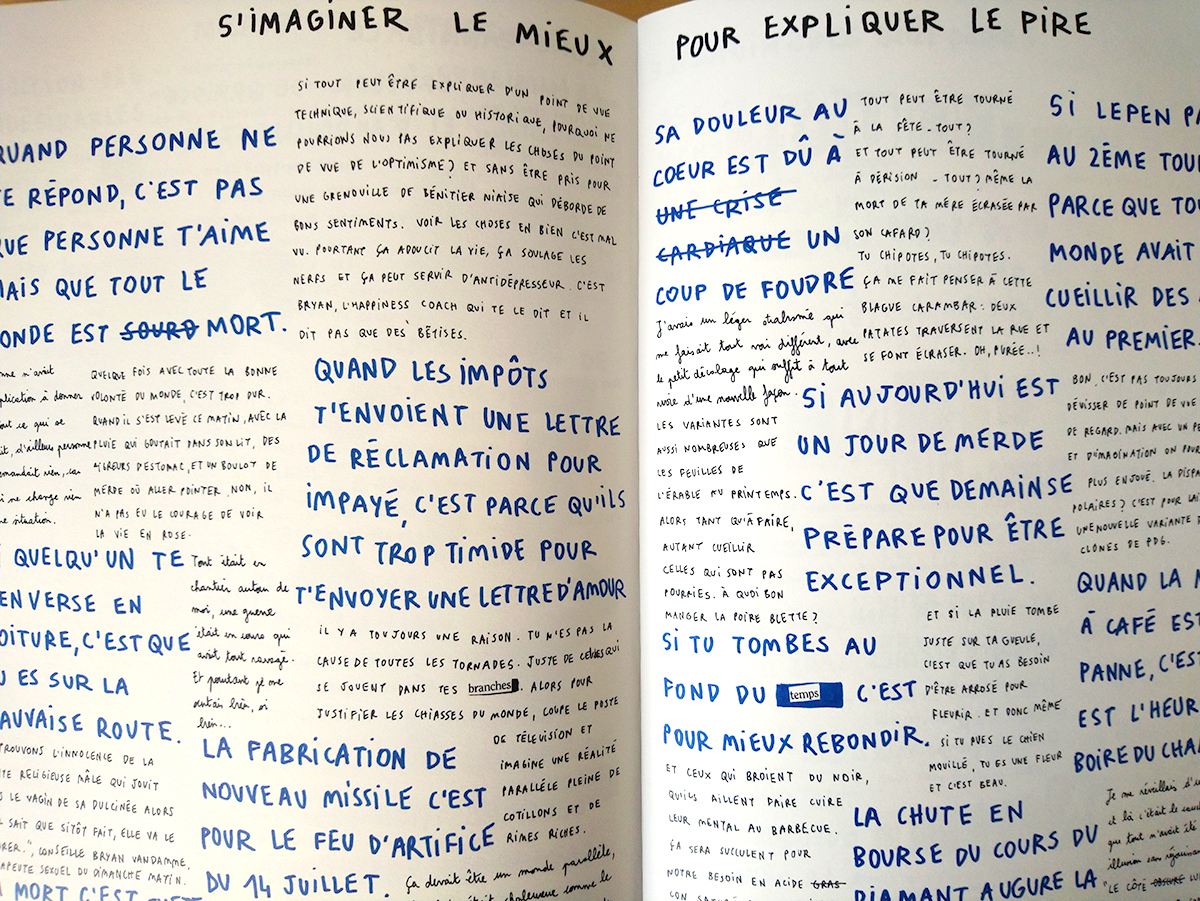 S'IMAGINER LE MIEUX POUR EXPLIQUER LE PIRE
QUAND PERSONNE NE
TE RÉPOND, C'EST PAS
QUE PERSONNE T'AIME
MAIS QUE TOUT LE
MONDE EST SOURD MORT.
SI TOUT PEUT ÊTRE EXPLIQUER D'UN POINT DE VUE
TECHNIQUE, SCIENTIFIQUE OU HISTORIQUE, POURQUOI NE
POURRIONS NOUS PAS EXPLIQUER LES CHOSES DU POINT
DE VUE DE L'OPTIMISME? ET SANS ÊTRE PRIS POUR
UNE GRENOUILLE DE BÉNITIER NIAISE QUI DÉBORDE DE
BONS SENTIMENTS. VOIR LES CHOSES EN BIEN C'EST MAL
VU. POURTANT ÇA ADOUCIT LA VIE, ÇA SOULAGE LES
NERFS ET ÇA PEUT SERVIR D'ANTIDÉPRESSEUR. C'EST
BRYAN, L'HAPPINESS COACH QUI TE LE DIT ET IL
DIT PAS QUE DES BÊTISES.
n'avait
à donner
ce qui se
d'ailleurs personne
rien, car
ne change rien
situation.
QUELQUE FOIS AVEC TOUTE LA BONNE
VOLONTÉ DU MONDE, C'EST TROP DUR.
QUAND IL S'EST LEVÉ CE MATIN, AVEC LA
PLUIE QUI GOUTAIT DANS SON LIT, DES
AIGREURS D'ESTOMAC, ET UN BOULOT DE
MERDE OÙ ALLER POINTER. NON, IL
N'A PAS EU LE COURAGE DE VOIR
LA VIE EN ROSE.
QUAND LES IMPÔTS
T'ENVOIENT UNE LETTRE
DE RÉCLAMATION POUR
IMPAYÉ, C'EST PARCE QU'ILS
SONT TROP TIMIDE POUR
T'ENVOYER UNE LETTRE D'AMOUR
SI QUELQU'UN TE
RENVERSE EN
VOITURE, C'EST QUE
TU ES SUR LA
MAUVAISE ROUTE.
Tout était en
chantier autour de
moi, une guerre
était en cours qui
avait tout ravagé.
Et pourtant je me
sentais bien, si
bien...
IL Y A TOUJOURS UNE RAISON. TU N'ES PAS LA
CAUSE DE TOUTES LES TORNADES. JUSTE DE CELLES QUI
SE JOUENT DANS TES branches. ALORS POUR
JUSTIFIER LES CHIASSES DU MONDE, COUPE LE POSTE
DE TÉLÉVISION ET
IMAGINE UNE RÉALITÉ
PARALLÈLE PLEINE DE
COTILLONS ET DE
RIMES RICHES.
TROUVONS L'INNOCENCE DE LA
RELIGIEUSE MÂLE QUI JOUIT
LE VAGIN DE SA DULCINÉE ALORS
SAIT QUE SITÔT FAIT, ELLE VA LE
CONSEILLE BRYAN VANDAMME,
SEXUEL DU DIMANCHE MATIN.
MORT C'EST
LA FABRICATION DE
NOUVEAU MISSILE C'EST
POUR LE FEU D'ARTIFICE
DU 14 JUILLET.
Ça devait être un monde parallèle,
chaleureux comme le
SA DOULEUR AU
COEUR EST DÛ À
UNE CRISE
CARDIAQUE UN
COUP DE FOUDRE
TOUT PEUT ÊTRE TOURNÉ
À LA FÊTE - TOUT?
ET TOUT PEUT ÊTRE TOURNÉ
À DÉRISION - TOUT? MÊME LA
MORT DE TA MÈRE ÉCRASÉE PAR
SON CAFARD?
TU CHIPOTES, TU CHIPOTES.
ÇA ME FAIT PENSER À CETTE
BLAGUE CARAMBAR: DEUX
PATATES TRAVERSENT LA RUE ET
SE FONT ÉCRASER. OH, PURÉE..!
J'avais un léger strabisme qui
me faisait tout voir différent, avec
le petit décalage qui suffit à tout
voir d'une nouvelle façon.
LES VARIANTES SONT
AUSSI NOMBREUSES QUE
LES FEUILLES DE
L'ÉRABLE AU PRINTEMPS.
ALORS TANT QU'À FAIRE,
AUTANT CUEILLIR
CELLES QUI SONT PAS
POURRIES. À QUOI BON
MANGER LA POIRE BLETTE?
SI AUJOURD'HUI EST
UN JOUR DE MERDE
C'EST QUE DEMAIN SE
PRÉPARE POUR ÊTRE
EXCEPTIONNEL.
SI TU TOMBES AU
FOND DU temps C'EST
POUR MIEUX REBONDIR.
ET SI LA PLUIE TOMBE
JUSTE SUR TA GUEULE,
C'EST QUE TU AS BESOIN
D'ÊTRE ARROSÉ POUR
FLEURIR. ET DONC MÊME
SI TU PUES LE CHIEN
MOUILLÉ, TU ES UNE FLEUR
ET C'EST BEAU.
ET CEUX QUI BROIENT DU NOIR,
QU'ILS AILLENT FAIRE CUIRE
LEUR MENTAL AU BARBECUE.
ÇA SERA SUCCULENT POUR
NOTRE BESOIN EN ACIDE GRAS
LA CHUTE EN
BOURSE DU COURS DU
DIAMANT AUGURE LA
SI LEPEN PA
AU 2ÈME TOU
PARCE QUE TO
MONDE AVAIT
CUEILLIR DES
AU PREMIER.
BON, C'EST PAS TOUJOURS
DÉVISSER DE POINT DE VUE
DE REGARD. MAIS AVEC UN PE
ET D'IMAGINATION ON POUR
PLUS ENJOUÉ. LA DISPA
POLAIRES? C'EST POUR LAI
UNE NOUVELLE VARIANTE D
CLONES DE PDG.
QUAND LA M
À CAFÉ EST
PANNE, C'EST
EST L'HEUR
BOIRE DU CHA
Je me réveillais d'
et là c'était le
que tout n'avait été
illusion sans
"LE CÔTÉ OBSCUR LU